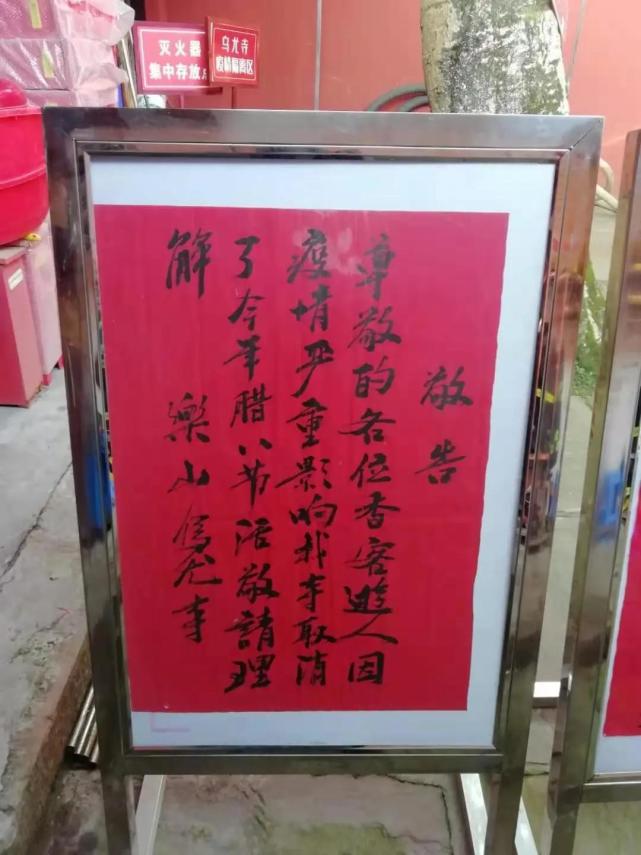 灭火器
集中存放点
乌尤寺
疫情隔离区
敬告
尊敬的各位香客遊人因
疫情严重影响我寺取消
了今年腊八节活敬請理
解 樂山烏尤寺